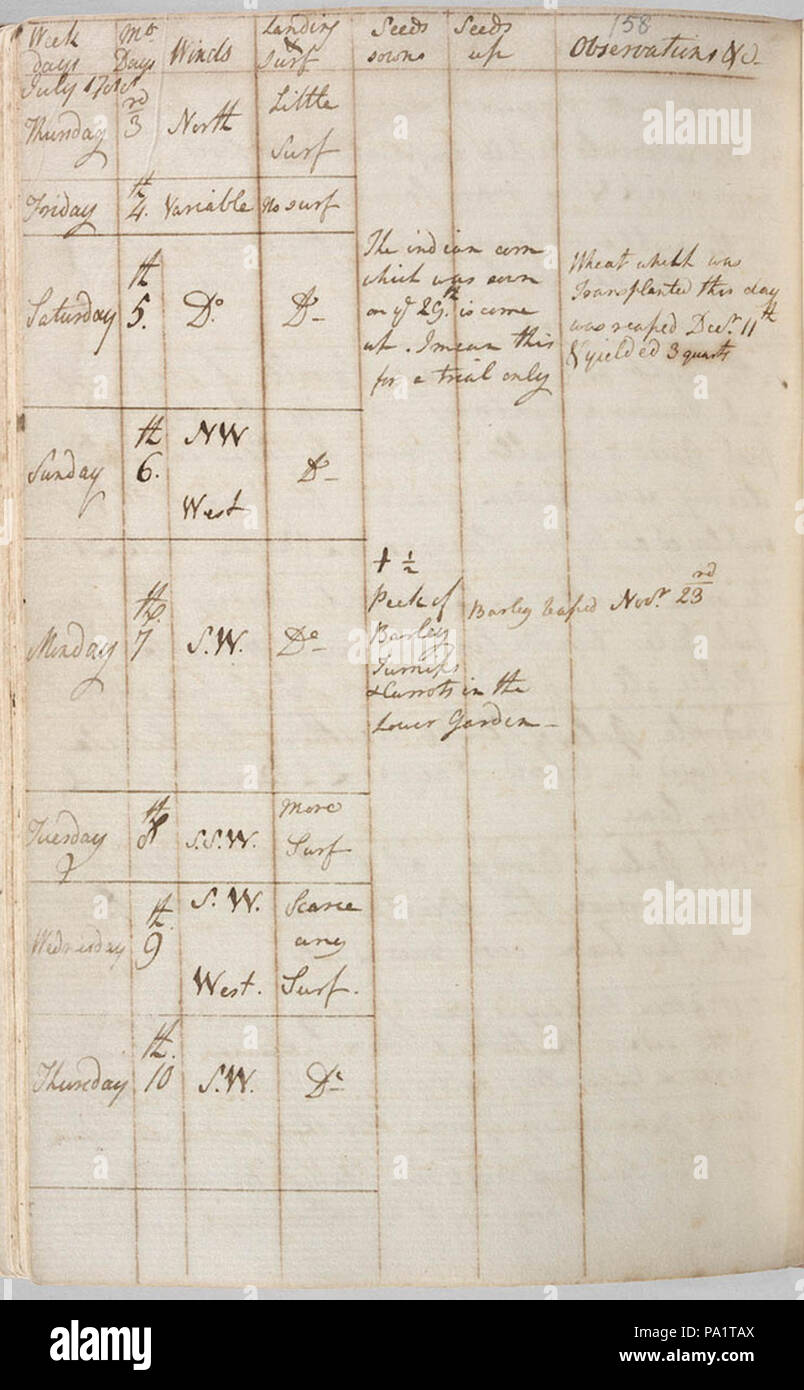 158
Week days
Mo Days
Winds
Landing & Surf
Seeds sowns
Seeds up
Observations &c.
July 1788
Thursday 3rd North Little Surf
Friday 4th. Variable No surf
Saturday 5th. Do. Do
The indian corn
which was sown
on ye 29th. is come
up. I mean this
for a trial only
Wheat which was
Transplanted this day
was reaped Decr. 11th
& yielded 3 quarts
Sunday 6th. NW West Do
Monday 7th S.W. Do
+ ½
Peck of
Barley
Turnips
& Carrots in the
Lower Garden
Barley reaped Novr. 23rd
Tuesday 8th S.S.W. More Surf
Wednesday 9th. S.W. West. Scarce any Surf.
Thursday 10th. S.W. Do
alamy
alamy
alamy
Image ID: PA1TAX
www.alamy.com